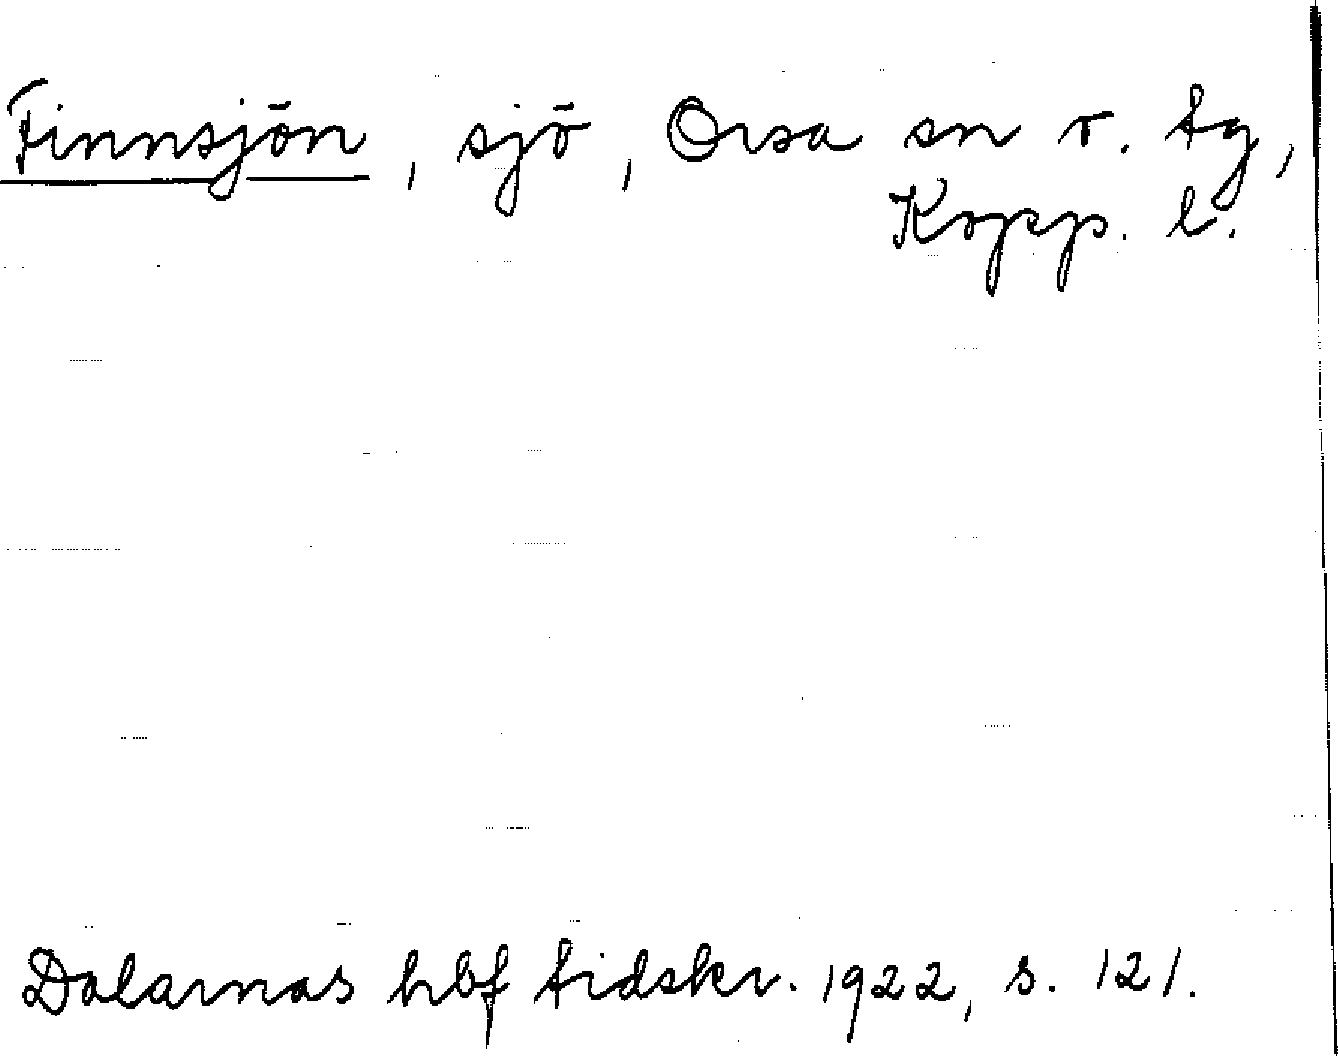 Finnsjön, sjö, Orsa sn o. tg,
Kopp. l.
Dalarnas hbf tidskr. 1922, s. 121.